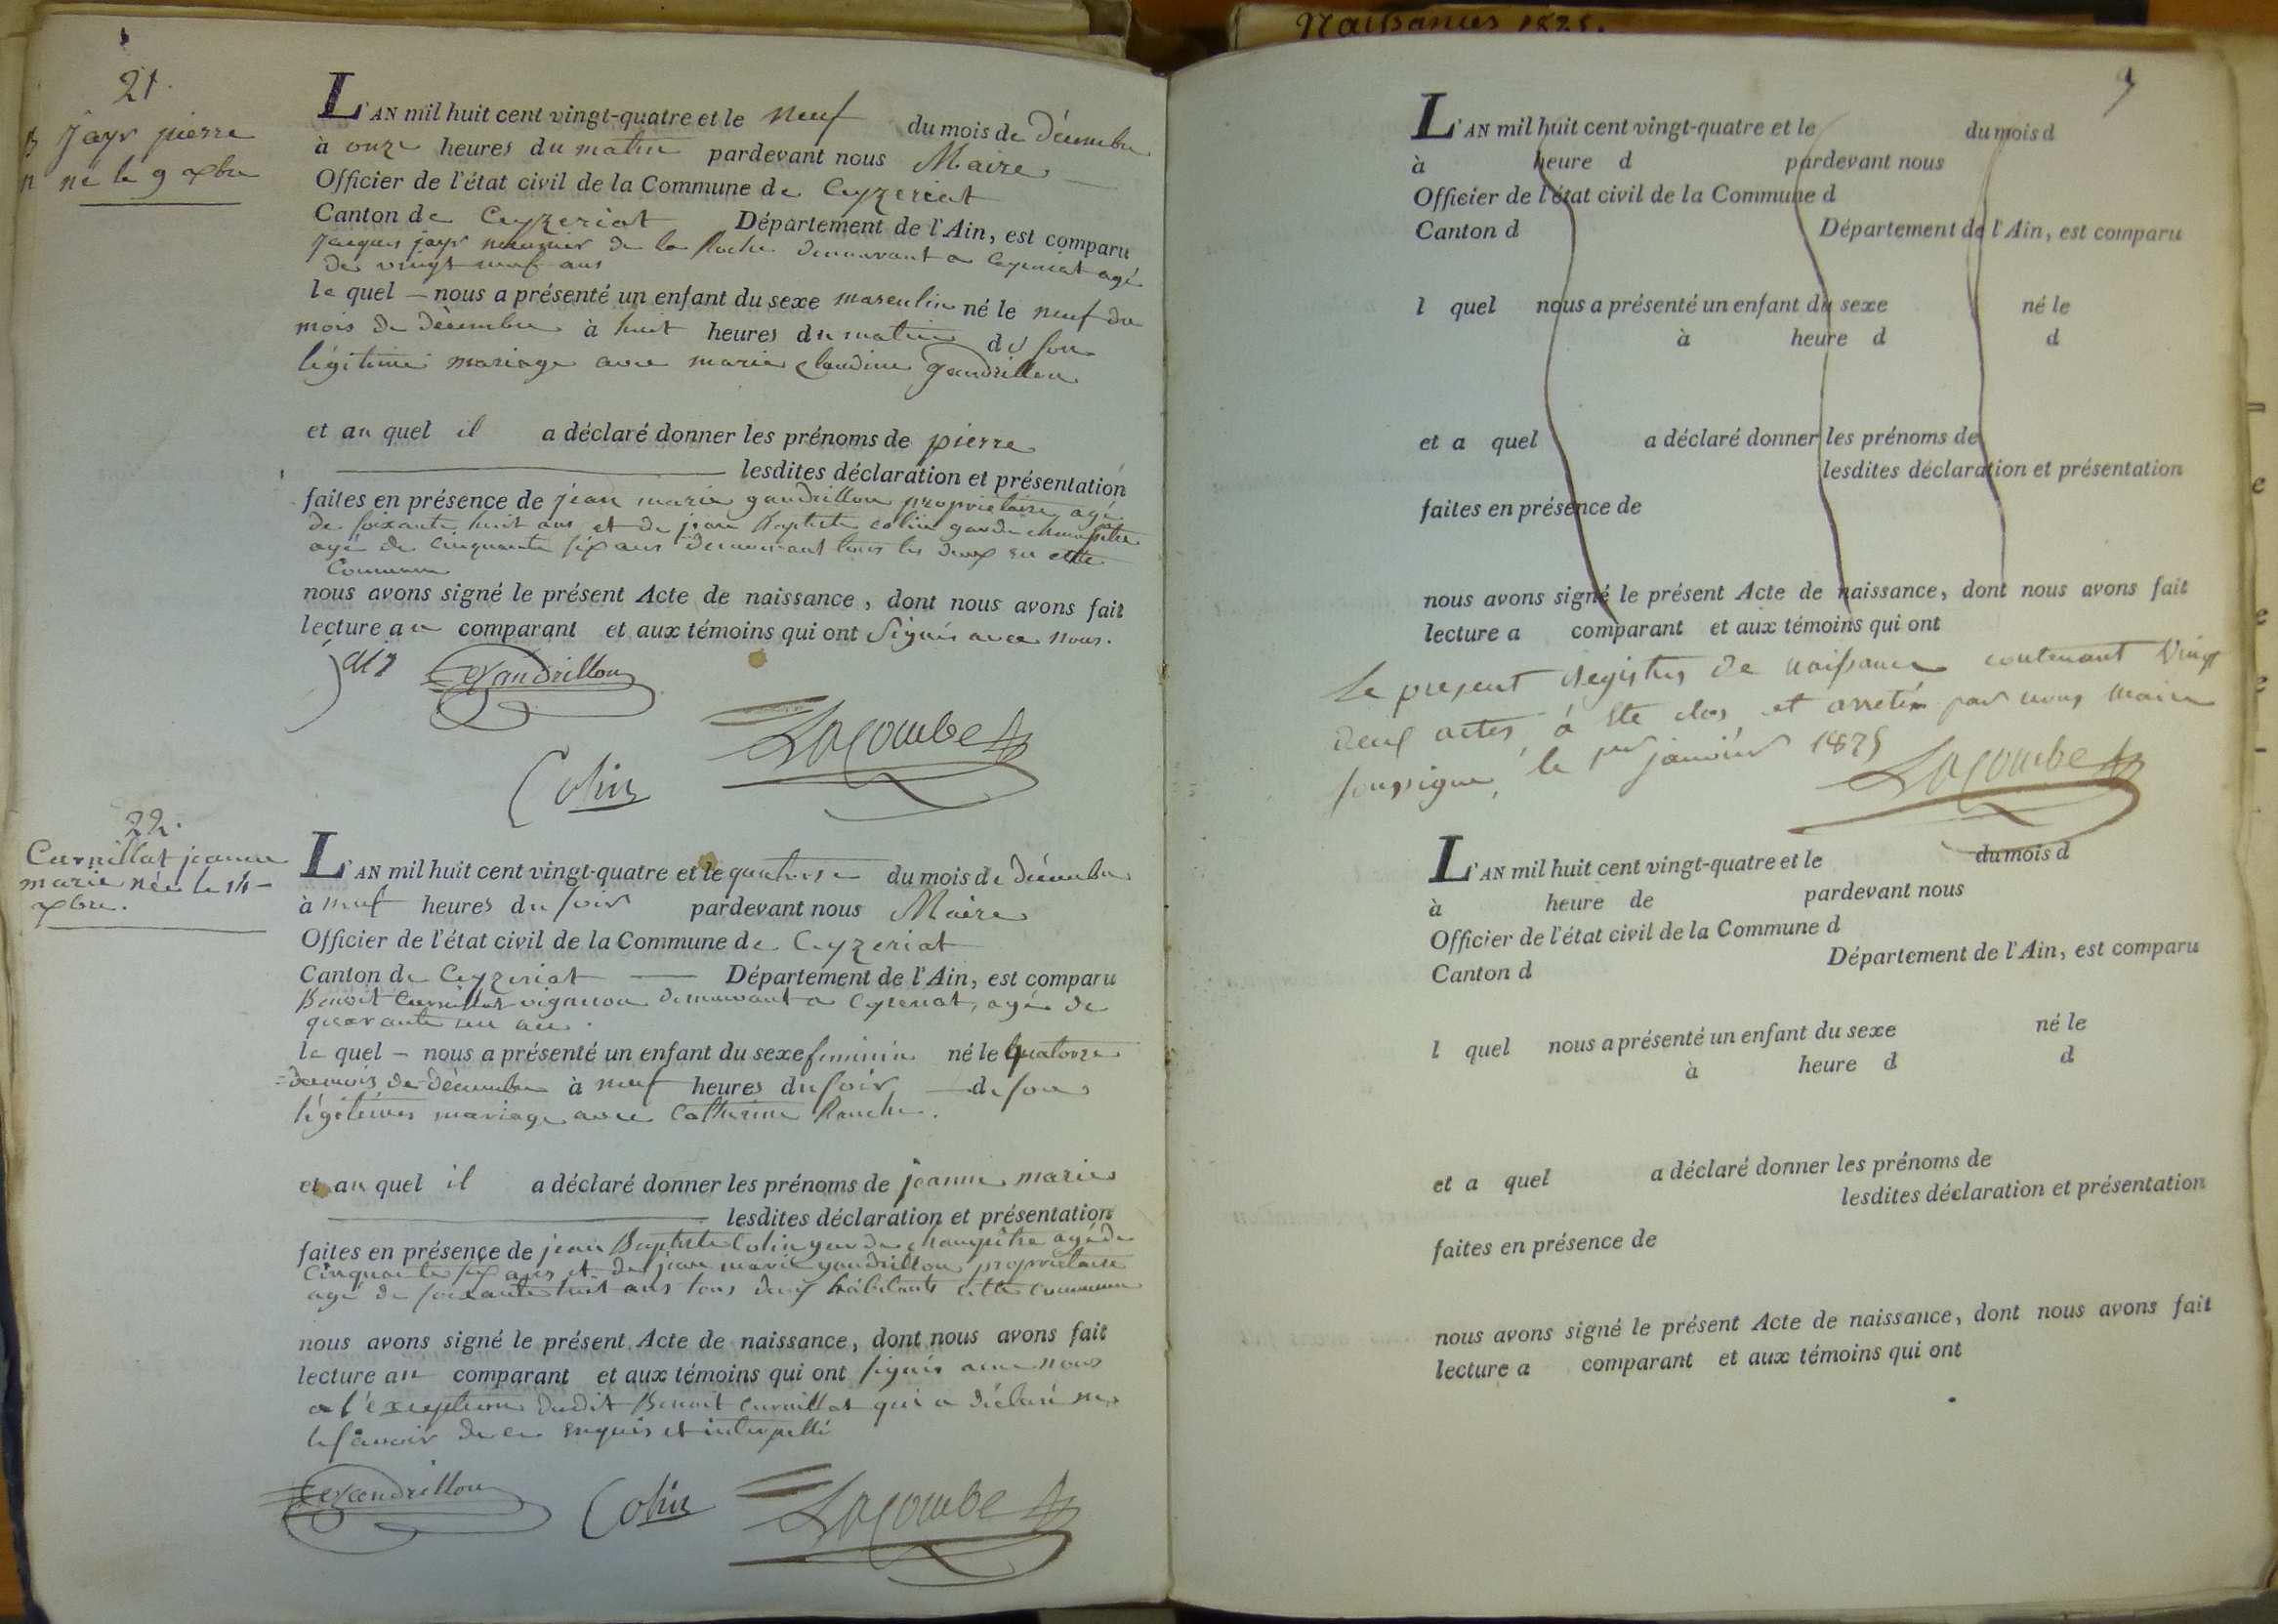 Naissances 1825.
21.
Jayr pierre
né le 9 xbre
L'AN mil huit cent vingt-quatre et le neuf du mois de décembre
à onze heures du matin pardevant nous Maire
Officier de l'état civil de la Commune de Ceyzeriat
Canton de Ceyzeriat Département de l'Ain, est comparu
Jacques jayr meunier de la Roche demeurant a Ceyzeriat agé
de vingt neuf ans
le quel — nous a présenté un enfant du sexe masculin né le neuf du
mois de décembre à huit heures du matin de son
légitime mariage avec marie claudine gandrillon
et au quel il a déclaré donner les prénoms de pierre
lesdites déclaration et présentation
faites en présence de jean marie gandrillon propriétaire agé
de soixante huit ans et de jean Baptiste colin garde champêtre
agé de cinquante six ans demeurant tous les deux en cette
Commune
nous avons signé le présent Acte de naissance, dont nous avons fait
lecture au comparant et aux témoins qui ont signés avec nous.
Gandrillon
Lacombe
Colin
22.
Curnillat jeanne
marie née le 14
xbre.
L'AN mil huit cent vingt-quatre et le quatorze du mois de décembre
à neuf heures du soir pardevant nous Maire
Officier de l'état civil de la Commune de Ceyzeriat
Canton de Ceyzeriat — Département de l'Ain, est comparu
Benoit Curnillat vigneron demeurant a Ceyzeriat, agé de
quarante un an.
le quel — nous a présenté un enfant du sexe feminin né le quatorze
du mois de décembre à neuf heures du soir — de son
légitime mariage avec Catherine
et au quel il a déclaré donner les prénoms de jeanne marie
lesdites déclaration et présentation
faites en présence de jean Baptiste Colin garde champêtre agé de
Cinquante six ans et de jean marie gandrillon propriétaire
agé de soixante huit ans tous deux habitants cette commune
nous avons signé le présent Acte de naissance, dont nous avons fait
lecture au comparant et aux témoins qui ont signés avec nous
a l'exception dudit Benoit Curnillat qui a déclaré ne
le savoir de ce enquis et interpellé
Gandrillon Colin Lacombe
9
L'AN mil huit cent vingt-quatre et le du mois d
à heure d pardevant nous
Officier de l'état civil de la Commune d
Canton d Département de l'Ain, est comparu
l quel nous a présenté un enfant du sexe né le
à heure d d
et a quel a déclaré donner les prénoms de
lesdites déclaration et présentation
faites en présence de
nous avons signé le présent Acte de naissance, dont nous avons fait
lecture a comparant et aux témoins qui ont
Le present Registre de naissance contenant vingt
deux actes à été clos et arreté par nous maire
soussigné, le 1er janvier 1825
Lacombe
L'AN mil huit cent vingt-quatre et le du mois d
à heure de pardevant nous
Officier de l'état civil de la Commune d
Canton d Département de l'Ain, est comparu
l quel nous a présenté un enfant du sexe né le
à heure d d
et a quel a déclaré donner les prénoms de
lesdites déclaration et présentation
faites en présence de
nous avons signé le présent Acte de naissance, dont nous avons fait
lecture a comparant et aux témoins qui ont